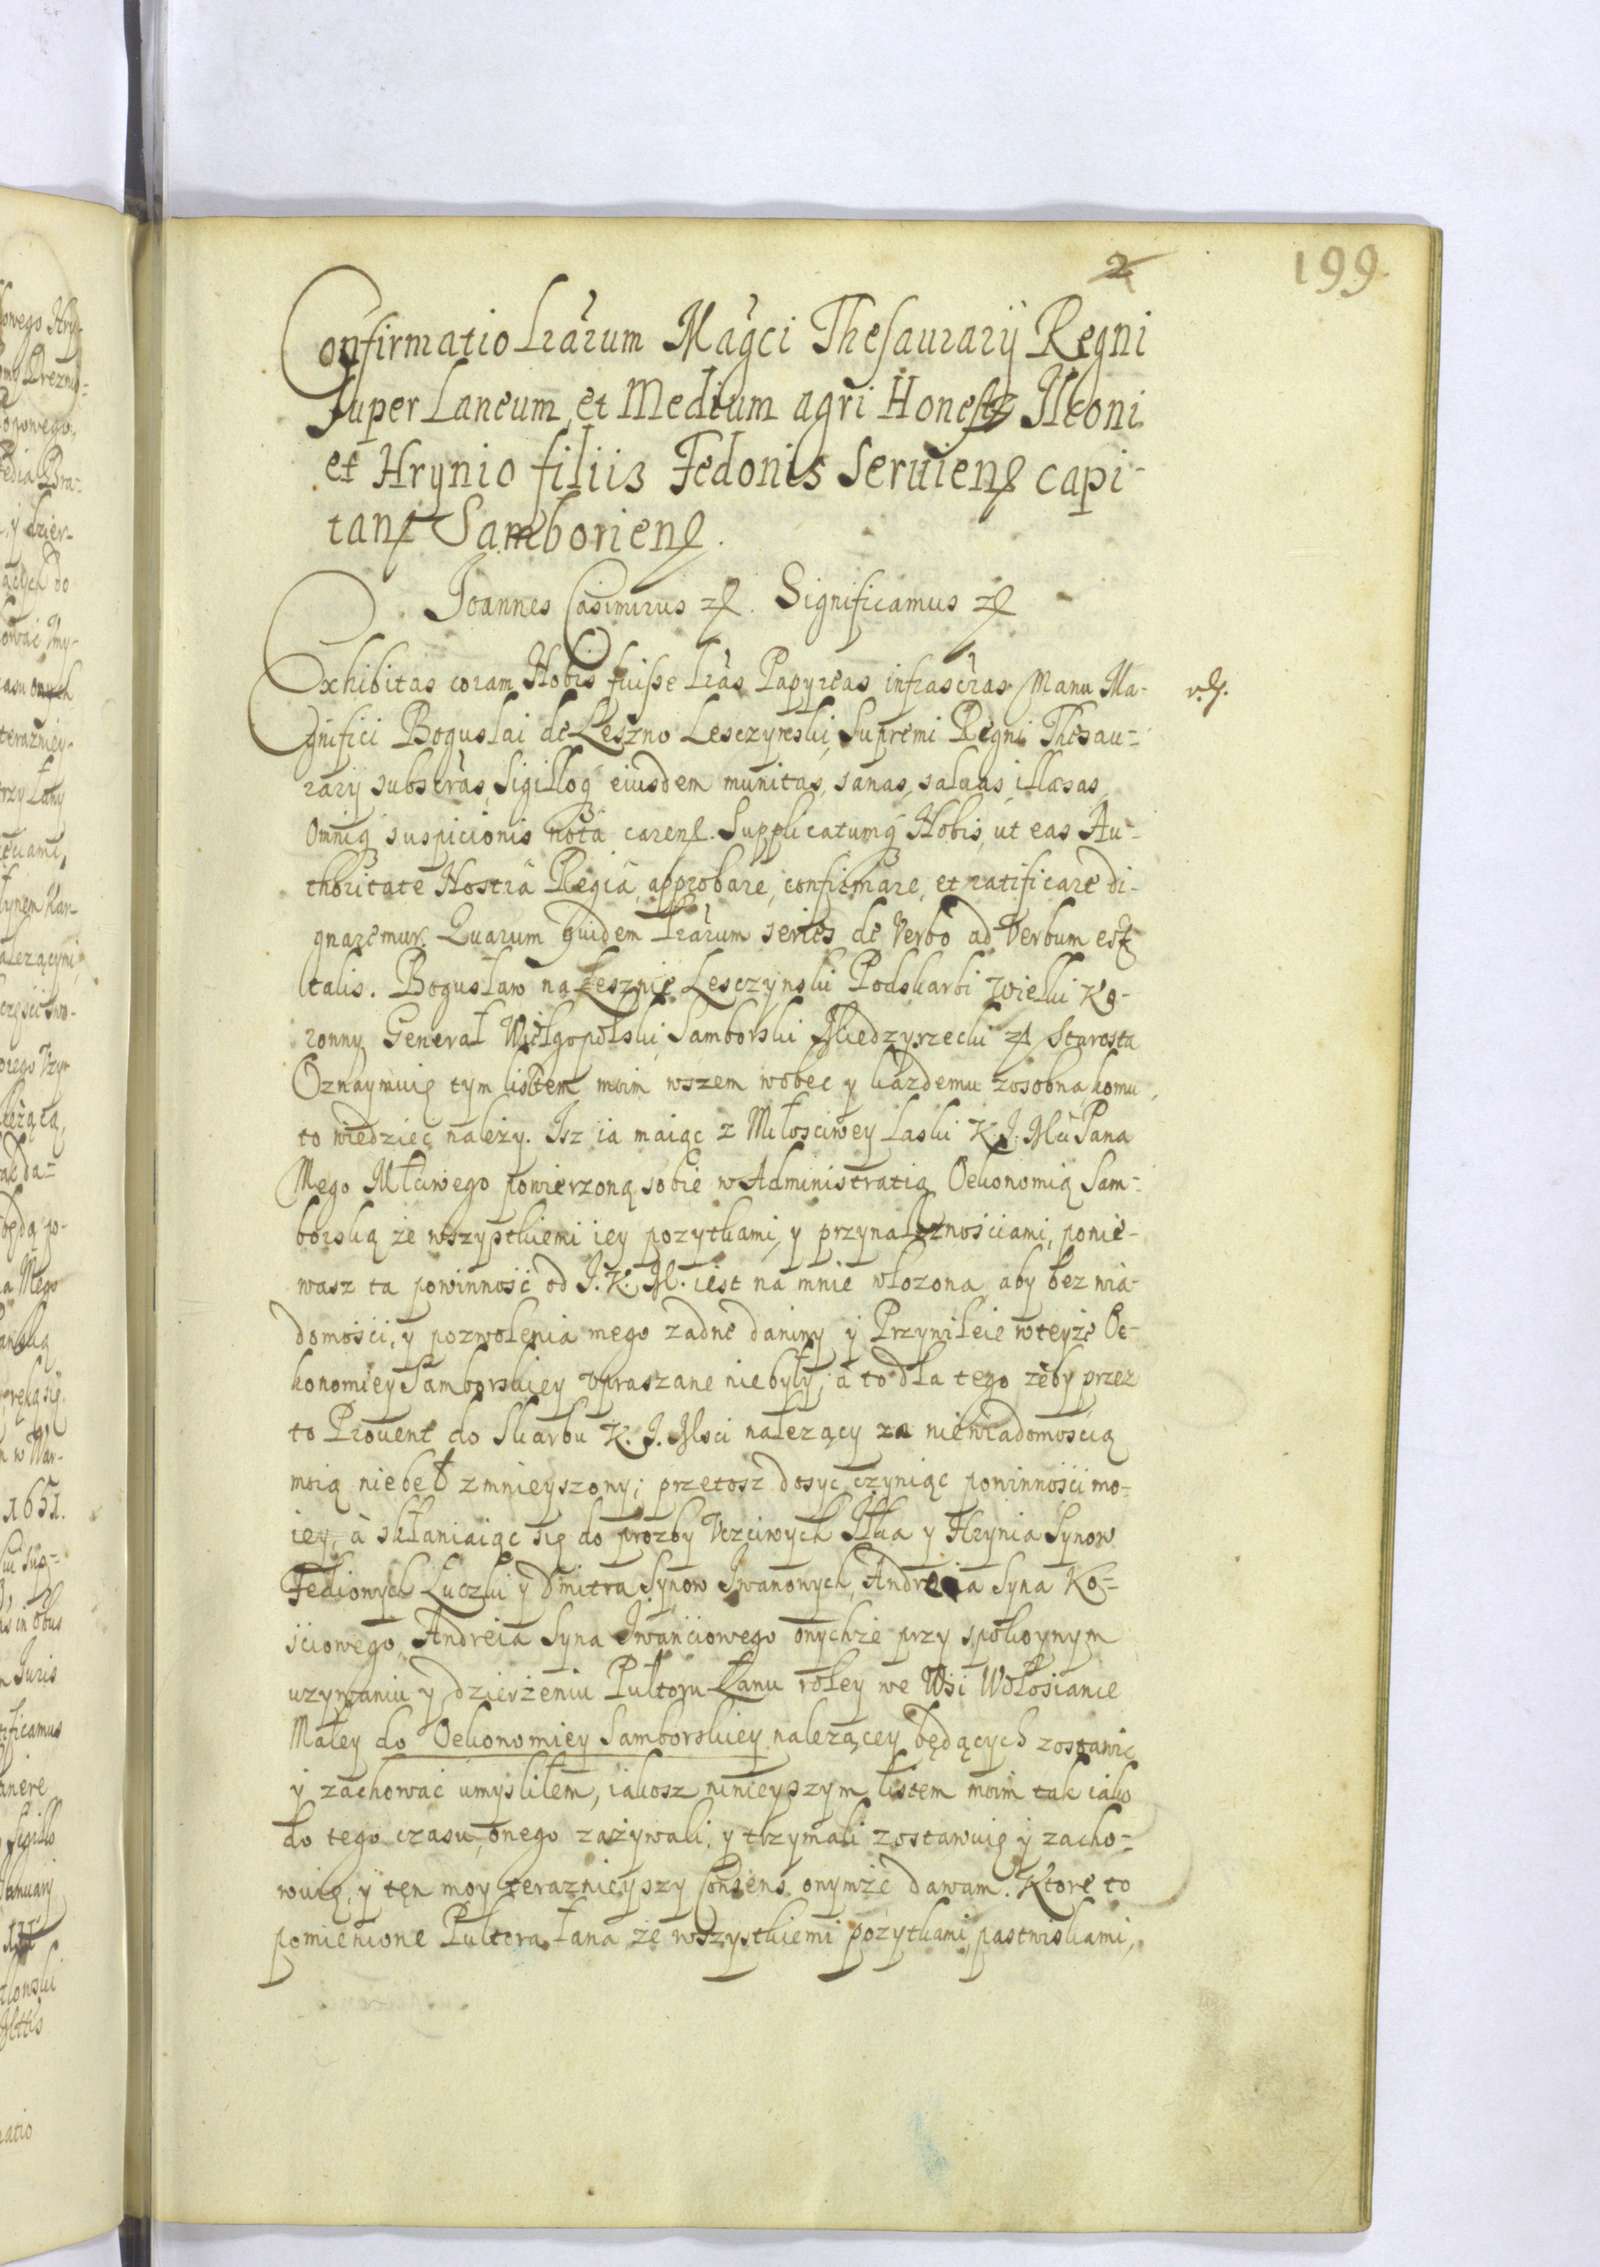 199
2
Confirmatio Lrarum Magci Thesaurarij Regni
super Laneum et Medium agri Honestis Ilkoni
et Hrynio filiis Fedonis Seruien capi-
tant Samborien.
Joannes Casimirus etc. Significamus etc
Exhibitas coram Nobis fuisse lras Papyreas infrascras Manu Ma-
gnifici Boguslai de Leszno Lesczynski, Supremi Regni Thesau-
rarij subscras, Sigilloq eiusdem munitas, sanas, saluas, illaesas
Omniq suspicionis nota caren. Supplicatumq Nobis, ut eas Au-
thoritate Nostra Regia approbare, confirmare, et ratificare di-
gnaremur. Quarum quidem lrarum series de Verbo ad Verbum est
talis. Bogusław na Lesznie Lesczynski Podskarbi Wielki Ko-
ronny Generał Wielgopolski, Samborski Miedzyrzecki etc Starosta
Oznaymuię tym listem moim wszem wobec y każdemu zosobna, komu
to wiedziec należy. Isz ia maiąc z Miłosciwey Laski K. J. Mci Pana
Mego Młciwego powierzoną sobie w Administratią Oekonomią Sam-
borską ze wszystkiemi iey pozytkami, y przynaleznościami, ponie-
wasz ta powinność od J. K. M. iest na mnie włozona, aby bez wia-
domości, y pozwolenia mego zadne daniny y Przywileie w teyże Oe-
konomiey Samborskiey vpraszane niebyły, a to dla tego żeby przez
to Prouent do Skarbu K. J. Msci nalezący za niewiadomoscią
moią niebeł zmnieyszony; przetosz dosyc czyniąc powinności mo-
iey, à skłaniaiąc się do prozby Vczciwych Ilka y Hrynia Synow
Fediowych Luczki y Dmitra Synow Iwanowych, Andreia Syna Ko-
ściowego, Andreia Syna Iwańciowego onychże przy spokoynym
uzywaniu y dzierżeniu Pułtoru Łanu roley we Wsi Wołosiance
Małey do Oekonomiey Samborskiey nalezącey będących zostawic
y zachować umysliłem, iakosz ninieyszym listem moim tak iako
do tego czasu, onego zażywali, y trzymali zostawuię y zacho-
wuię, y ten moy teraznieyszy Consens onymże dawam. Ktore to
pomienione Pułtora łana ze wszystkiemi pożytkami, pastwiskami,